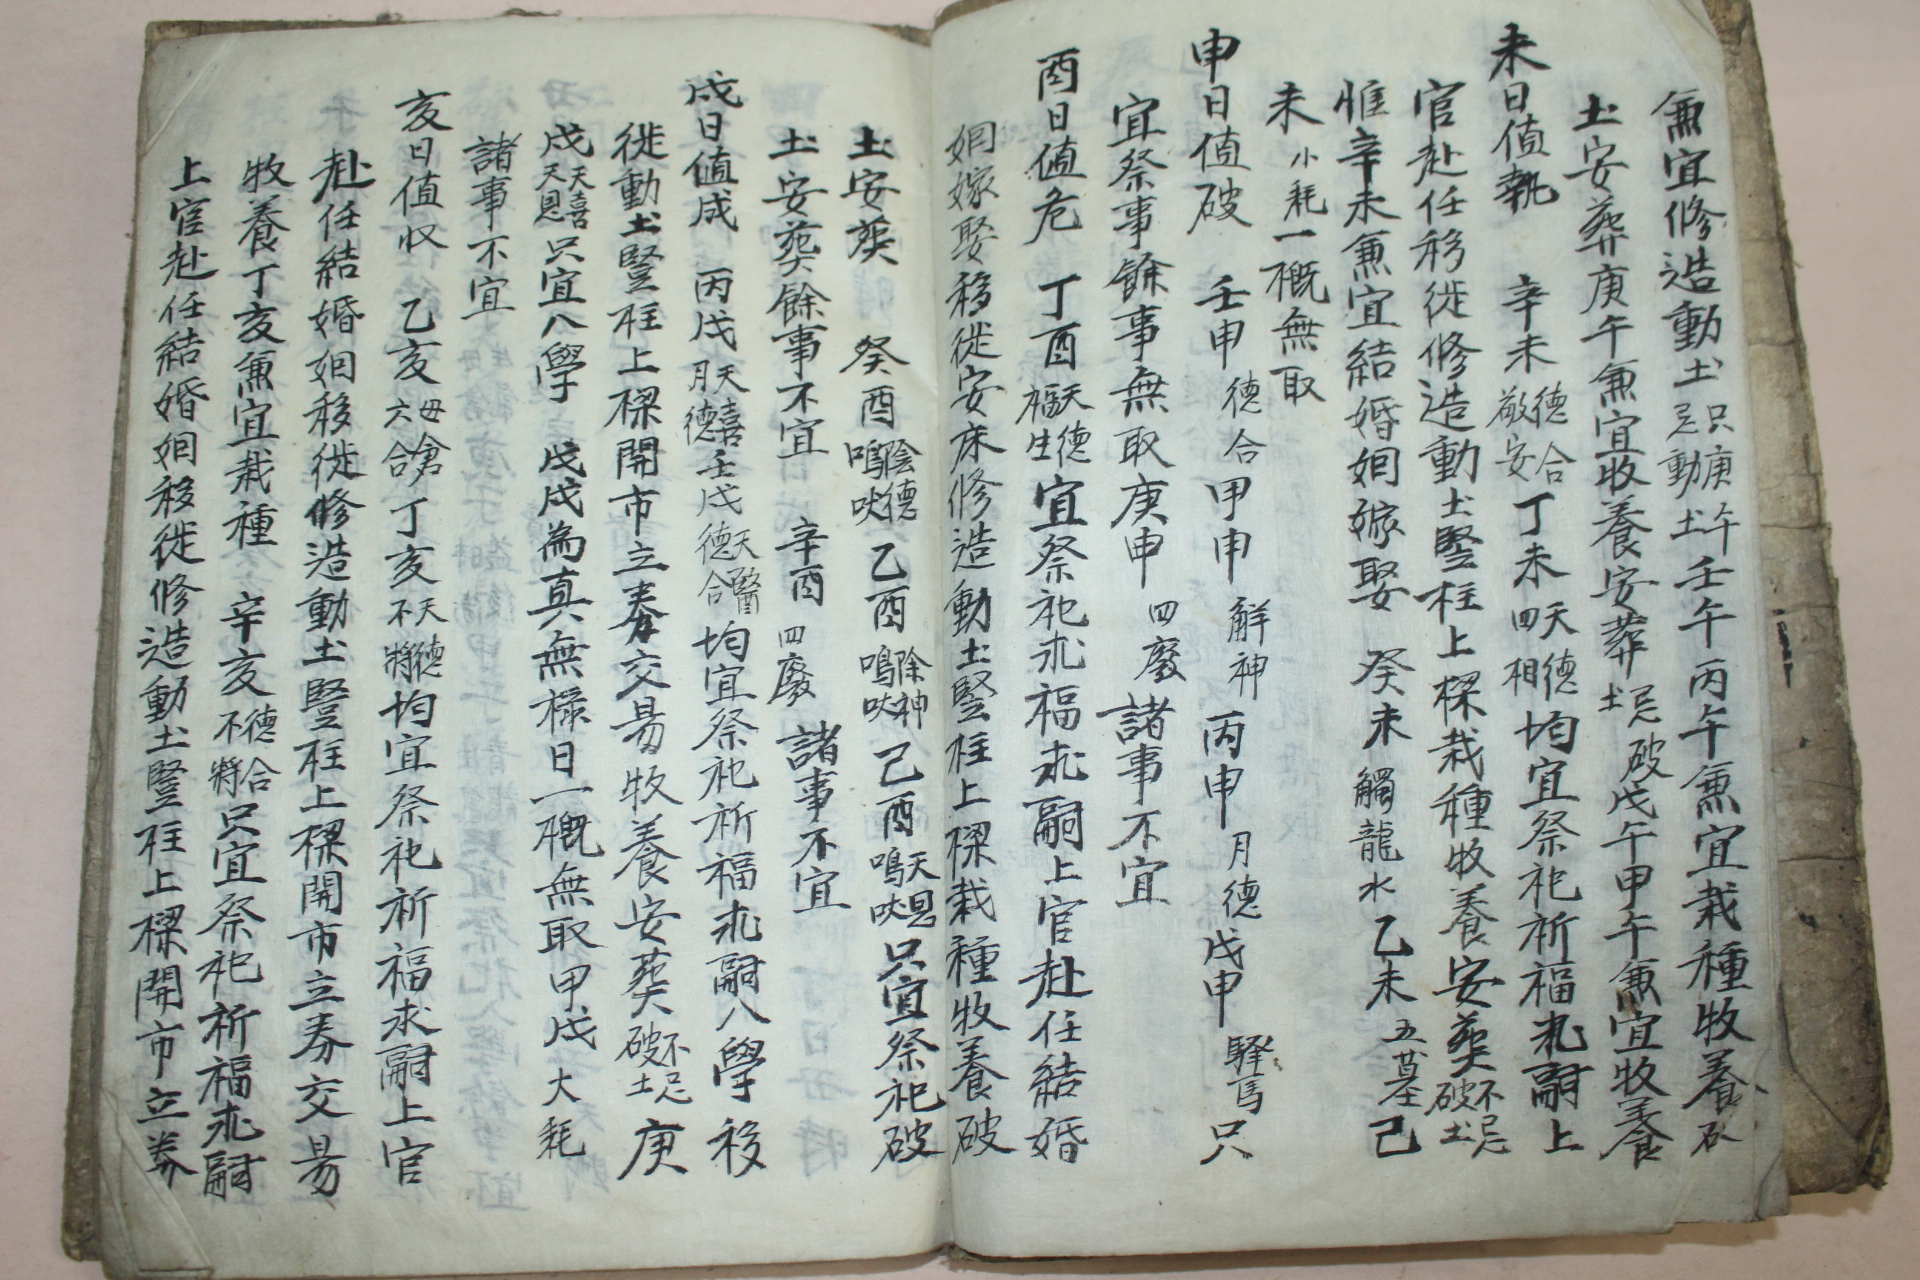 兼宜修造動土只庚午忌動土壬午丙午兼宜栽種牧養破
土安葬庚午兼宜收養安葬忌破土戊午甲午兼宜牧養
未日值執 辛未德合敬安丁未天德四相均宜祭祀祈福求嗣上
官赴任移徙修造動土竪柱上樑栽種牧養安葬不忌破土
惟辛未兼宜結婚姻嫁娶 癸未觸龍水乙未五墓己
未小耗一槪無取
申日值破 壬申德合甲申解神丙申月德戊申驛馬只
宜祭事餘事無取庚申四廢諸事不宜
酉日値危 丁酉天德福生宜祭祀求福求嗣上官赴任結婚
姻嫁娶移徙安床修造動土竪柱上樑栽種牧養破
土安葬 癸酉陰德鳴吠乙酉除神鳴吠己酉天恩鳴吠只宜祭祀破
土安葬餘事不宜 辛酉四廢諸事不宜
戌日値成 丙戌天喜月德壬戌天醫德合均宜祭祀祈福求嗣入學移
徙動土竪柱上樑開市立券交易牧養安葬不忌破土庚
戌天喜天恩只宜入學 戊戌為真無祿日一槪無取甲戌大耗
諸事不宜
亥日値收 乙亥母倉六合丁亥天德不將均宜祭祀祈福求嗣上官
赴任結婚姻移徙修造動土竪柱上樑開市立券交易
牧養丁亥兼宜栽種 辛亥德合不將只宜祭祀祈福求嗣
上官赴任結婚姻移徙修造動土竪柱上樑開市立券